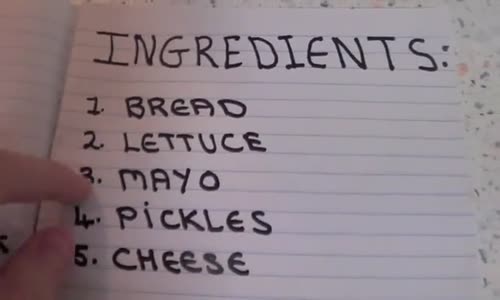 INGREDIENTS:
1. BREAD
2. LETTUCE
3. MAYO
4. PICKLES
5. CHEESE